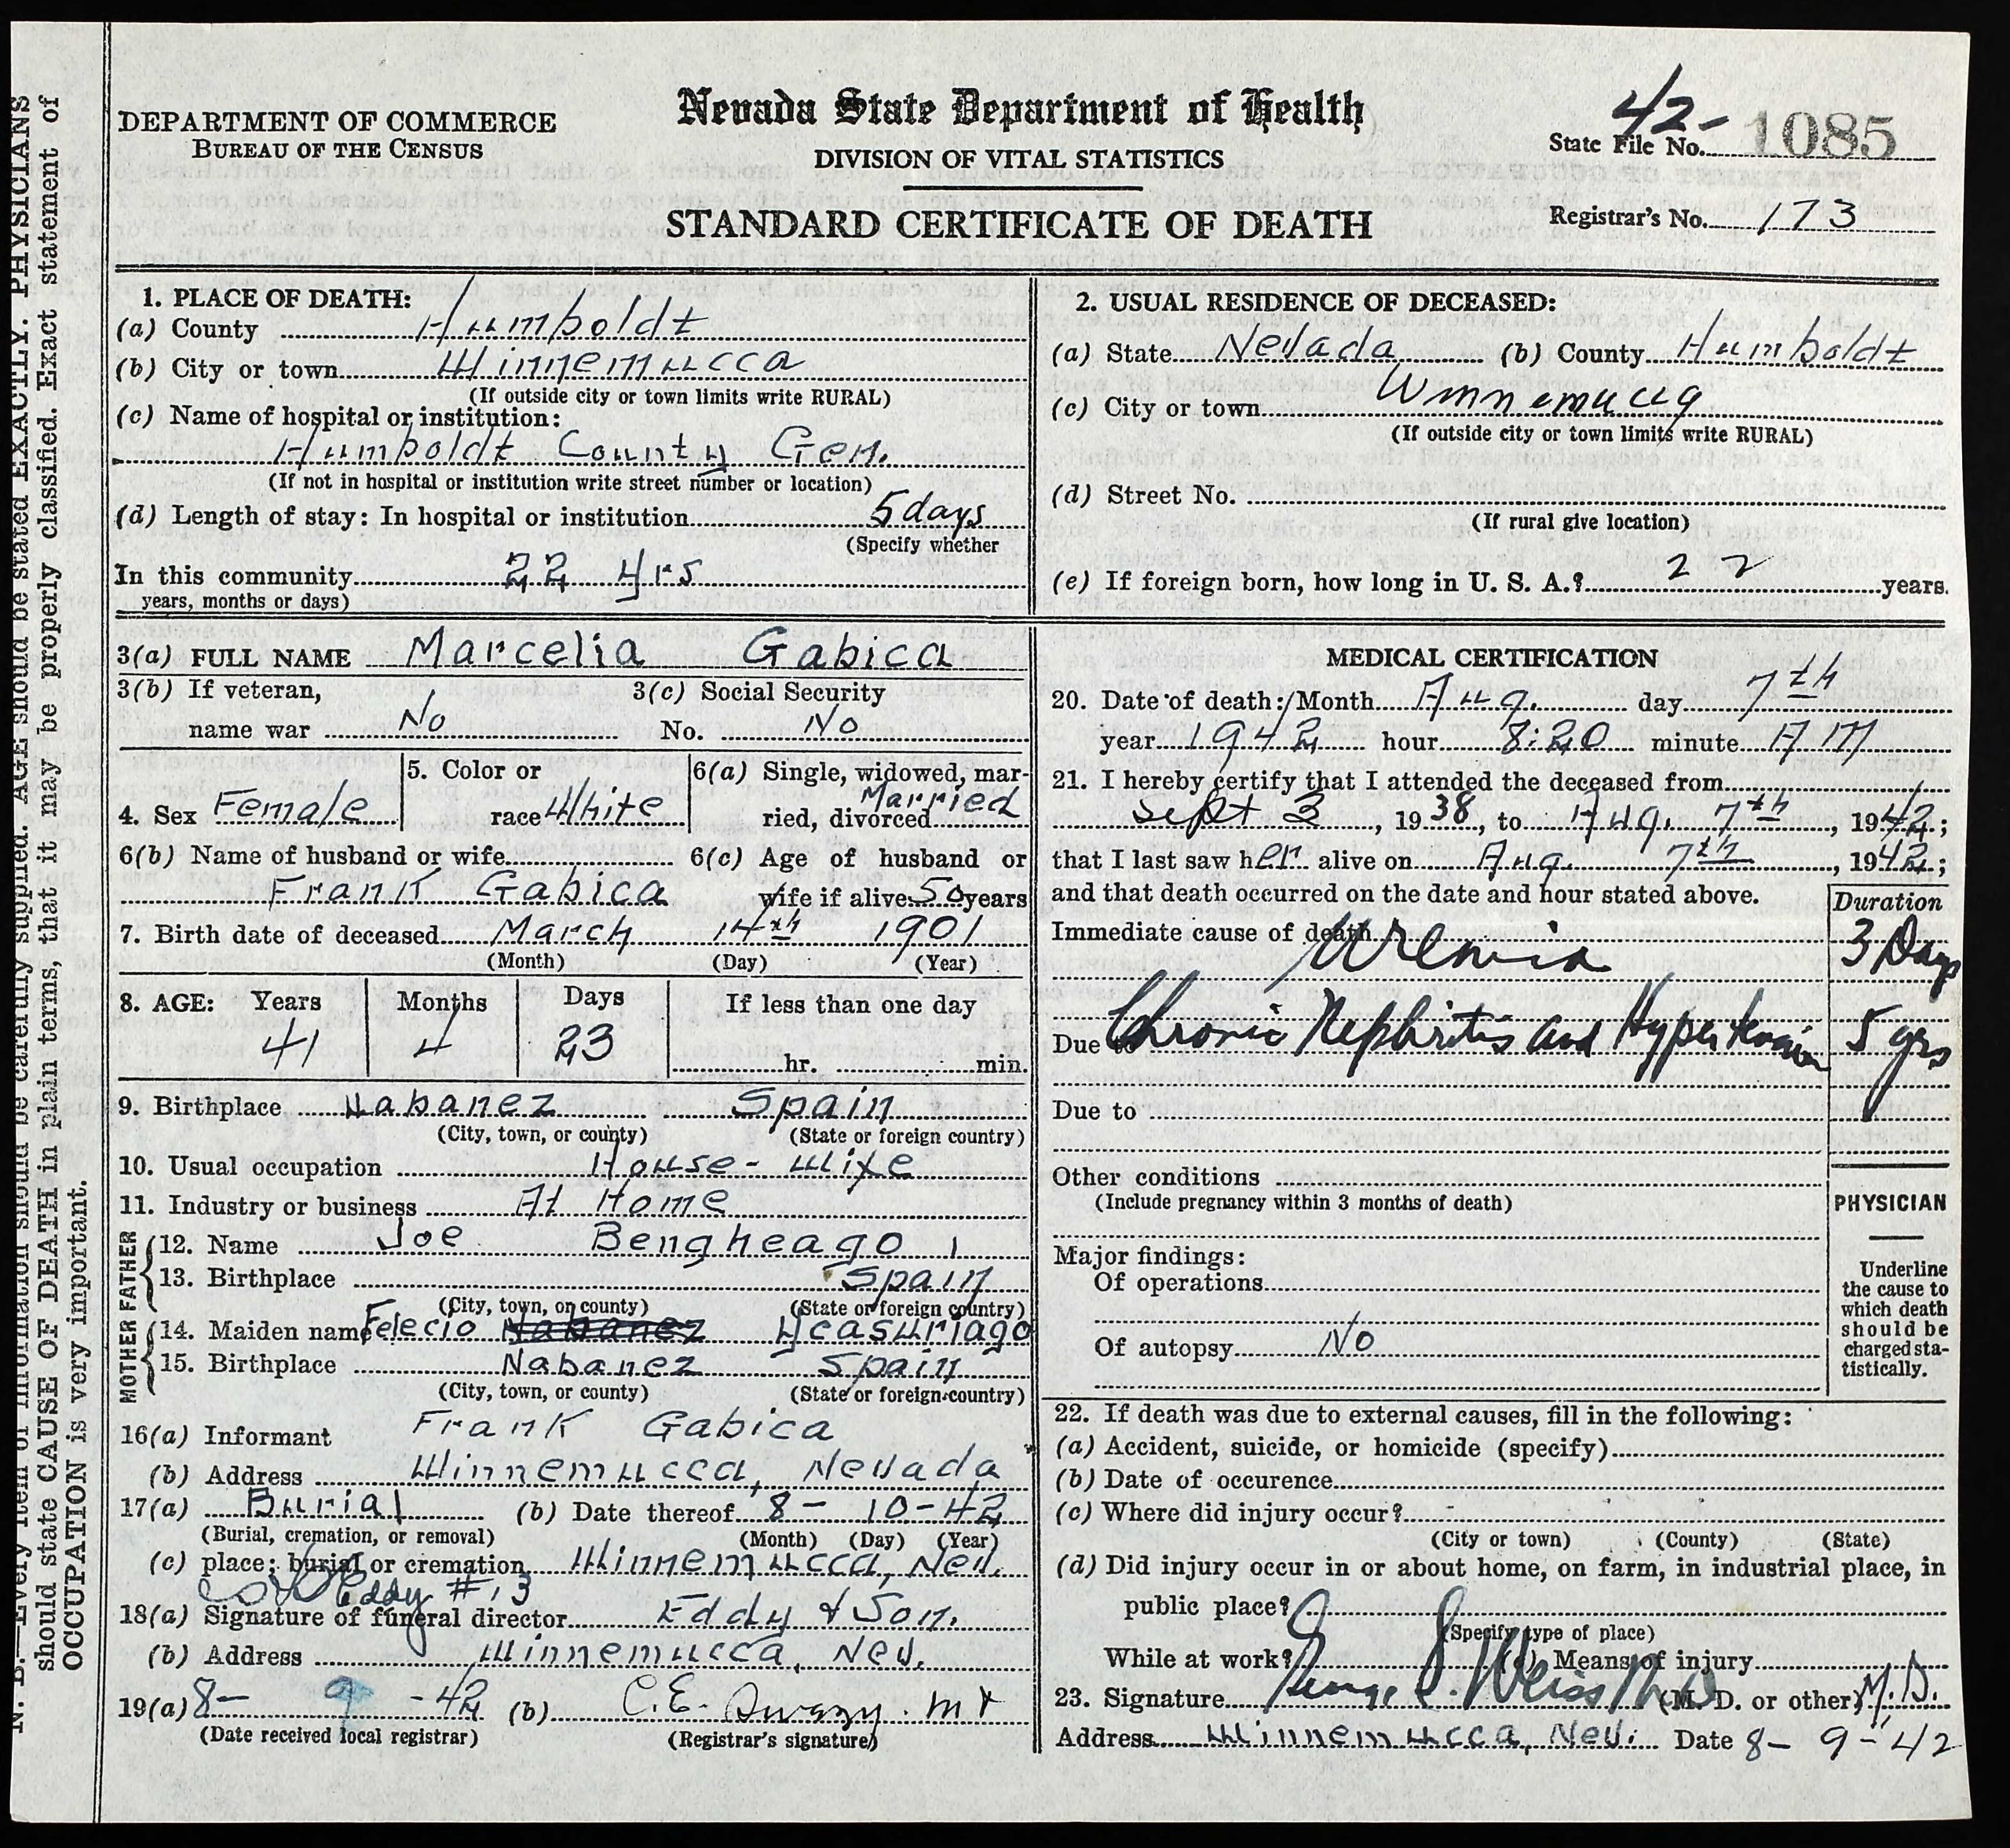 N. B.—Every item of information should be carefully supplied. AGE should be stated EXACTLY. PHYSICIANS
should state CAUSE OF DEATH in plain terms, that it may be properly classified. Exact statement of
OCCUPATION is very important.
DEPARTMENT OF COMMERCE
BUREAU OF THE CENSUS
Nevada State Department of Health
DIVISION OF VITAL STATISTICS
STANDARD CERTIFICATE OF DEATH
State File No. 42- 1085
Registrar's No. 173
1. PLACE OF DEATH:
(a) County Humboldt
(b) City or town Winnemucca
(If outside city or town limits write RURAL)
(c) Name of hospital or institution:
Humboldt County Gen.
(If not in hospital or institution write street number or location)
(d) Length of stay: In hospital or institution 5 days
(Specify whether
In this community 22 yrs
years, months or days)
2. USUAL RESIDENCE OF DECEASED:
(a) State Nevada (b) County Humboldt
(c) City or town Winnemucca
(If outside city or town limits write RURAL)
(d) Street No.
(If rural give location)
(e) If foreign born, how long in U. S. A.? 22 years.
3(a) FULL NAME Marcelia Gabica
3(b) If veteran, 3(c) Social Security
name war No No. No
4. Sex Female
5. Color or
race White
6(a) Single, widowed, mar-
ried, divorced Married
6(b) Name of husband or wife 6(c) Age of husband or
Frank Gabica wife if alive 50 years
7. Birth date of deceased March 14th 1901
(Month) (Day) (Year)
8. AGE: Years Months Days If less than one day
41 4 23 hr. min.
9. Birthplace Nabanez Spain
(City, town, or county) (State or foreign country)
10. Usual occupation House-wife
11. Industry or business At Home
FATHER
12. Name Joe Bengheago
13. Birthplace Spain
(City, town, or county) (State or foreign country)
MOTHER
14. Maiden name Felecio Nabanez Ycasuriago
15. Birthplace Nabanez Spain
(City, town, or county) (State or foreign country)
16(a) Informant Frank Gabica
(b) Address Winnemucca, Nevada
17(a) Burial (b) Date thereof 8-10-42
(Burial, cremation, or removal) (Month) (Day) (Year)
(c) place; burial or cremation Winnemucca, Nev.
Eddy #13
18(a) Signature of funeral director Eddy & Son.
(b) Address Winnemucca, Nev.
19(a) 8- 9 -42 (b) C.E. Swezy
(Date received local registrar) (Registrar's signature)
MEDICAL CERTIFICATION
20. Date of death: Month Aug. day 7th
year 1942 hour 8:20 minute AM
21. I hereby certify that I attended the deceased from
Sept 3, 1938, to Aug. 7th, 1942;
that I last saw her alive on Aug. 7th, 1942;
and that death occurred on the date and hour stated above.
Duration
Immediate cause of death Uremia 3 Days
Due to Chronic Nephritis and Hypertension 5 yrs
Due to
Other conditions
(Include pregnancy within 3 months of death)
Major findings:
Of operations
Of autopsy No
PHYSICIAN
Underline
the cause to
which death
should be
charged sta-
tistically.
22. If death was due to external causes, fill in the following:
(a) Accident, suicide, or homicide (specify)
(b) Date of occurence
(c) Where did injury occur?
(City or town) (County) (State)
(d) Did injury occur in or about home, on farm, in industrial place, in
public place?
(Specify type of place)
While at work? (e) Means of injury
23. Signature George S. Weiss M.D. (M. D. or other) M.D.
Address Winnemucca, Nev. Date 8-9-42